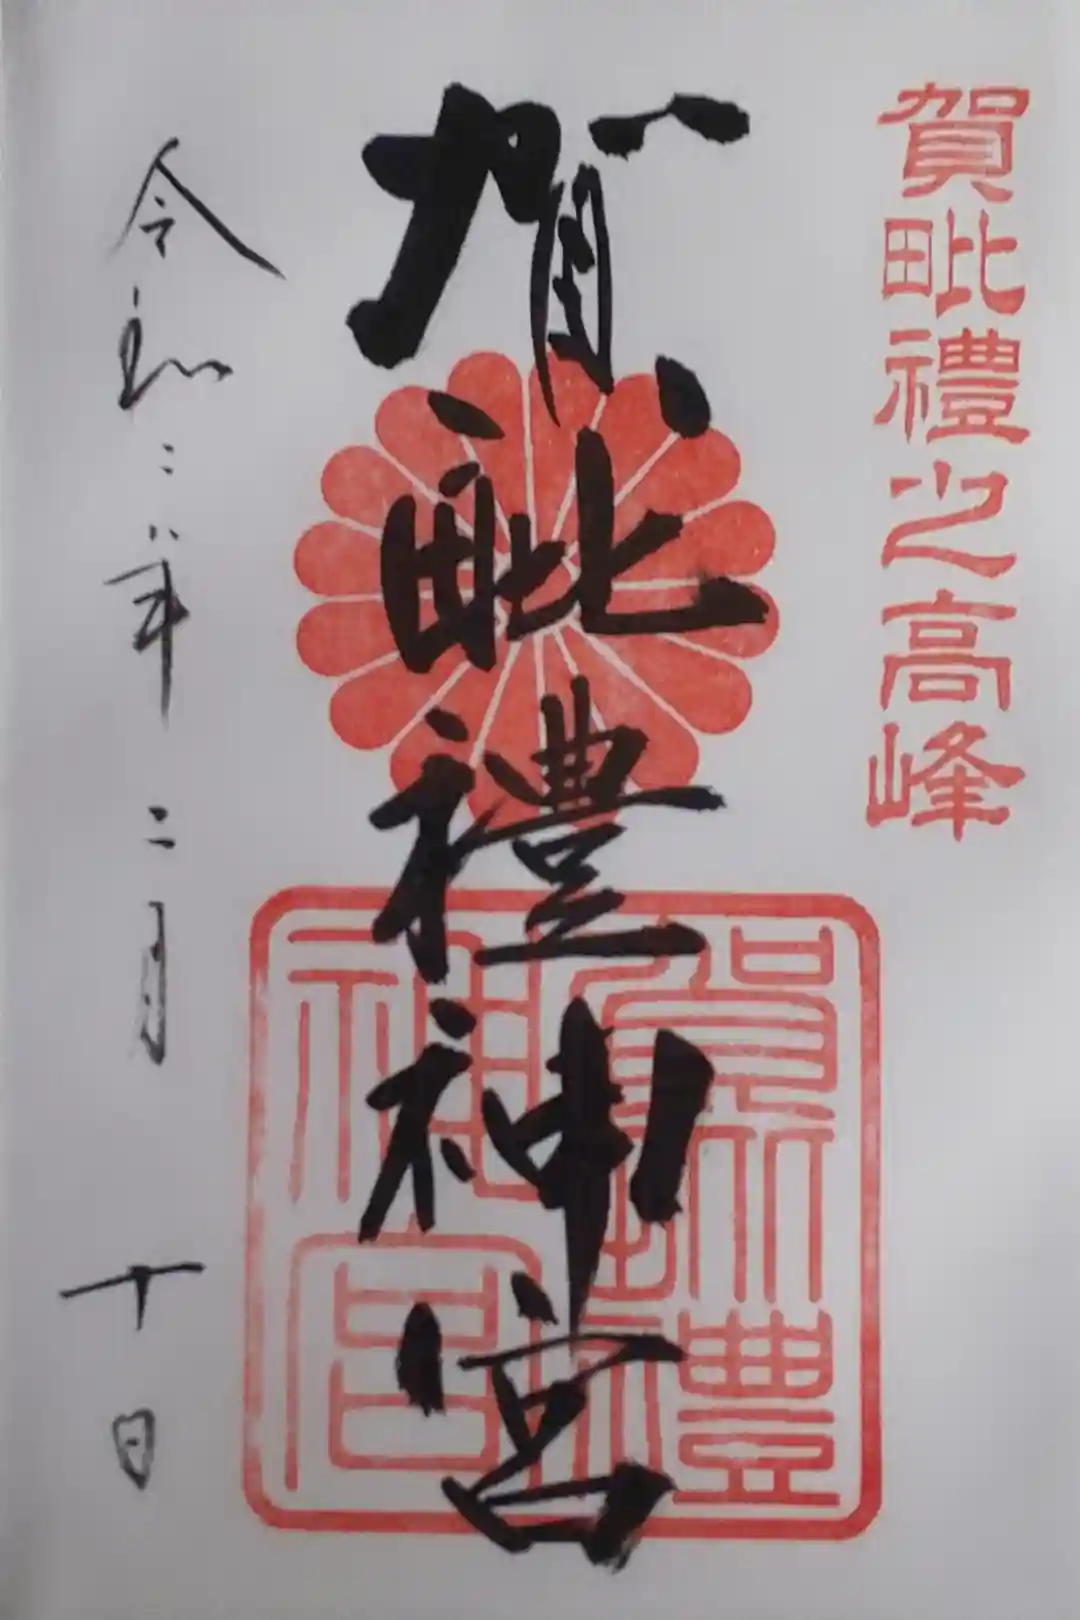 賀毗禮之高峰
賀毗禮神宮
賀毗禮神宮
令和二年二月十日